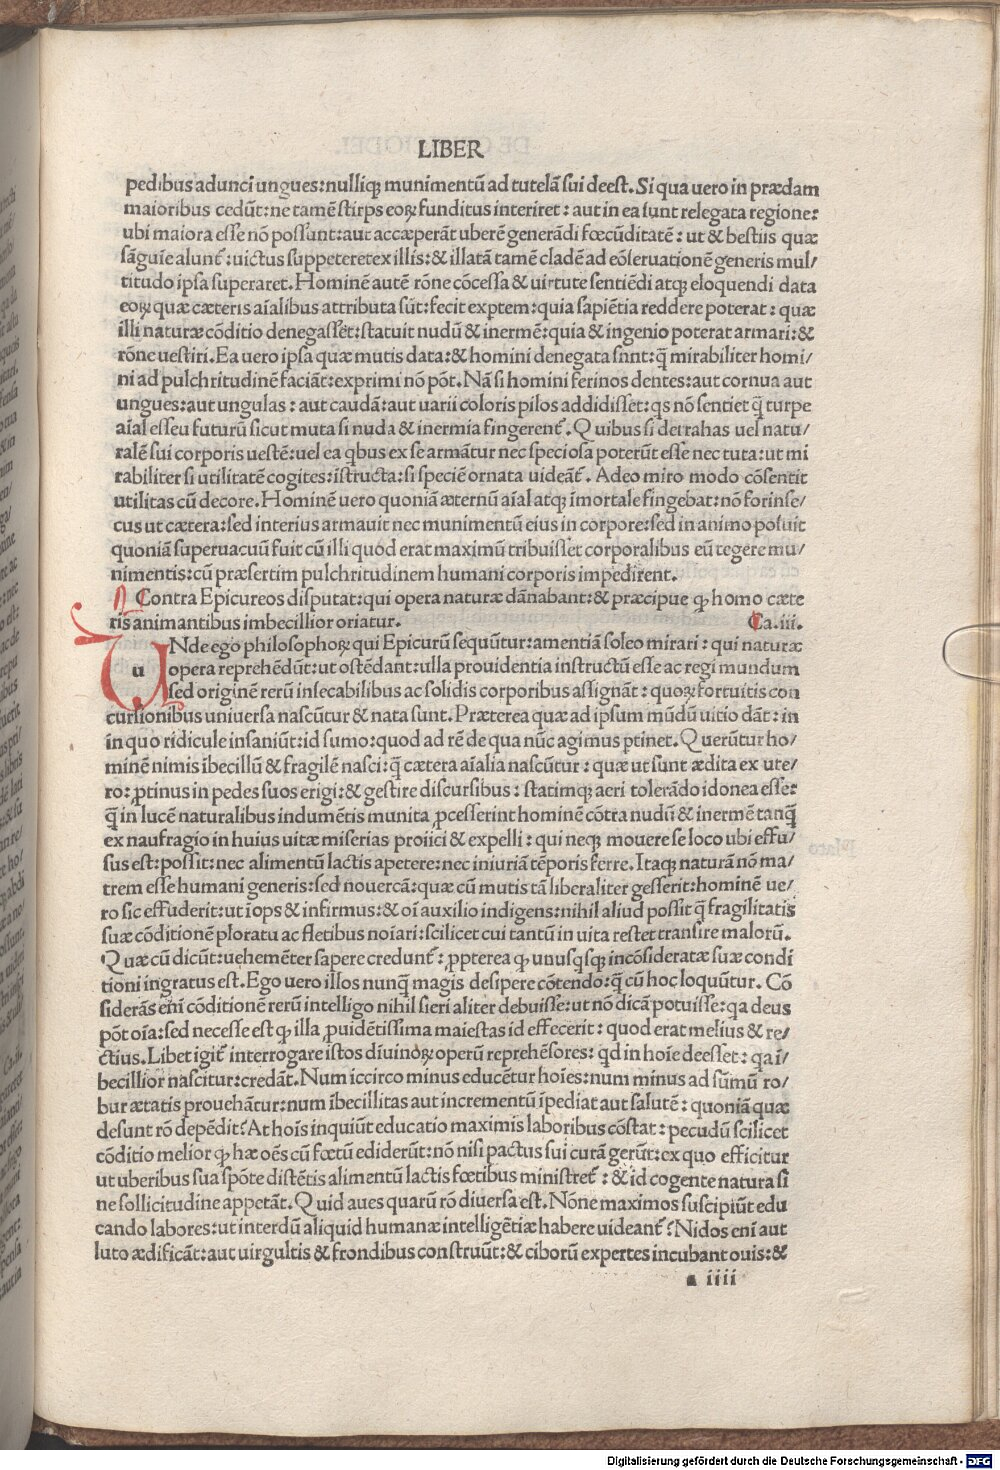 LIBER
pedibus adunci ungues:nulliq; munimentū ad tutelā sui deest. Si qua uero in prædam
maioribus cedūt:ne tamē stirps eoꝝ funditus interiret: aut in ea sunt relegata regione:
ubi maiora esse nō possunt:aut accæperāt uberē generādi fœcūditatē: ut & bestiis quæ
sāguīe alunt᷑:uictus suppeteret ex illis:& illatā tamē cladē ad cōseruationē generis mul/
titudo ipsa superaret. Hominē autē rōne cōcessa & uirtute sentiēdi atq; eloquendi data
eoꝝ quæ cæteris aīalibus attributa sūt:fecit exptem:quia sapiētia reddere poterat: quæ
illi naturæ cōditio denegasset:statuit nudū & inermē:quia & ingenio poterat armari:&
rōne uestiri. Ea uero ipsa quæ mutis data:& homini denegata snnt:q̄ mirabiliter homi/
ni ad pulchritudinē faciāt:exprimi nō pōt. Nā si homini ferinos dentes:aut cornua aut
ungues:aut ungulas: aut caudā:aut uarii coloris pilos addidisset:qs nō sentiet q̄ turpe
aīal esseu futurū sicut muta si nuda & inermia fingerent᷑. Quibus si detrahas uel natu/
ralē sui corporis uestē:uel ea qbus ex se armātur nec speciosa poterūt esse nec tuta:ut mi
rabiliter si utilitatē cogites:īstructa:si speciē ornata uideāt᷑. Adeo miro modo cōsentit
utilitas cū decore. Hominē uero quoniā æternū aīal atq; īmortale fingebat:nō forinse/
cus ut cætera:sed interius armauit nec munimentū eius in corpore:sed in animo posuit
quoniā superuacuū fuit cū illi quod erat maximū tribuisset corporalibus eū tegere mu/
nimentis:cū præsertim pulchritudinem humani corporis impedirent.
Contra Epicureos disputat:qui opera naturæ dānabant:& præcipue ꝙ homo cæte
ris animantibus imbecillior oriatur. Ca.iii.
uNde ego philosophoꝝ qui Epicurū sequūtur:amentiā soleo mirari: qui naturæ
opera reprehēdūt:ut ostēdant:ulla prouidentia instructū esse ac regi mundum
sed originē rerū insecabilibus ac solidis corporibus assignāt: quoꝝ fortuitis con
cursionibus uniuersa nascūtur & nata sunt. Præterea quæ ad ipsum mūdū uitio dāt: in
in quo ridicule insaniūt:id sumo:quod ad rē de qua nūc agimus ptinet. Querūtur ho/
minē nimis ībecillū & fragilē nasci:q̄ cætera aīalia nascūtur: quæ ut sunt ædita ex ute/
ro: protinus in pedes suos erigi:& gestire discursibus: statimq; aeri tolerādo idonea esse:
q̄ in lucē naturalibus indumētis munita pcesserint hominē cōtra nudū & inermē tanq̄
ex naufragio in huius uitæ miserias proiici & expelli: qui neq; mouere se loco ubi effu/
sus est:possit:nec alimentū lactis apetere:nec iniuriā tēporis ferre. Itaq; naturā nō ma/
trem esse humani generis:sed nouercā:quæ cū mutis tā liberaliter gesserit:hominē ue/
ro sic effuderit:ut īops & infirmus:& oī auxilio indigens:nihil aliud possit q̄ fragilitatis
suæ cōditionē ploratu ac fletibus noīari:scilicet cui tantū in uita restet transire malorū.
Quæ cū dicūt:uehemēter sapere credunt᷑: ppterea ꝙ unusqsq; incōsideratæ suæ condi
tioni ingratus est. Ego uero illos nunq̄ magis desipere cōtendo:q̄ cū hoc loquūtur. Cō
siderās ēnī cōditionē rerū intelligo nihil fieri aliter debuisse:ut nō dicā potuisse:qa deus
pōt oīa:sed necesse est ꝙ illa puidētissima maiestas id effecerit: quod erat melius & re/
ctius. Libet igit᷑ interrogare istos dīuinoꝝ operū reprehēsores: qd in hoīe deesset: qa ī/
becillior nascitur:credāt. Num iccirco minus educētur hoīes:num minus ad sūmū ro/
bur ætatis prouehātur:num ībecillitas aut incrementū īpediat aut salutē: quoniā quæ
desunt rō depēdit? At hoīs inquiūt educatio maximis laboribus cōstat: pecudū scilicet
cōditio melior ꝙ hæ oēs cū fœtū ediderūt:nō nisi pactus sui curā gerūt:ex quo efficitur
ut uberibus sua spōte distētis alimentū lactis fœtibus ministret᷑: & id cogente natura si
ne sollicitudine appetāt. Quid aues quarū rō diuersa est. Nōne maximos suscipiūt edu
cando labores:ut interdū aliquid humanæ intelligētiæ habere uideant᷑? Nidos enī aut
luto ædificāt:aut uirgultis & frondibus construūt:& ciborū expertes incubant ouis:&
a iiii
Digitalisierung gefördert durch die Deutsche Forschungsgemeinschaft - DFG